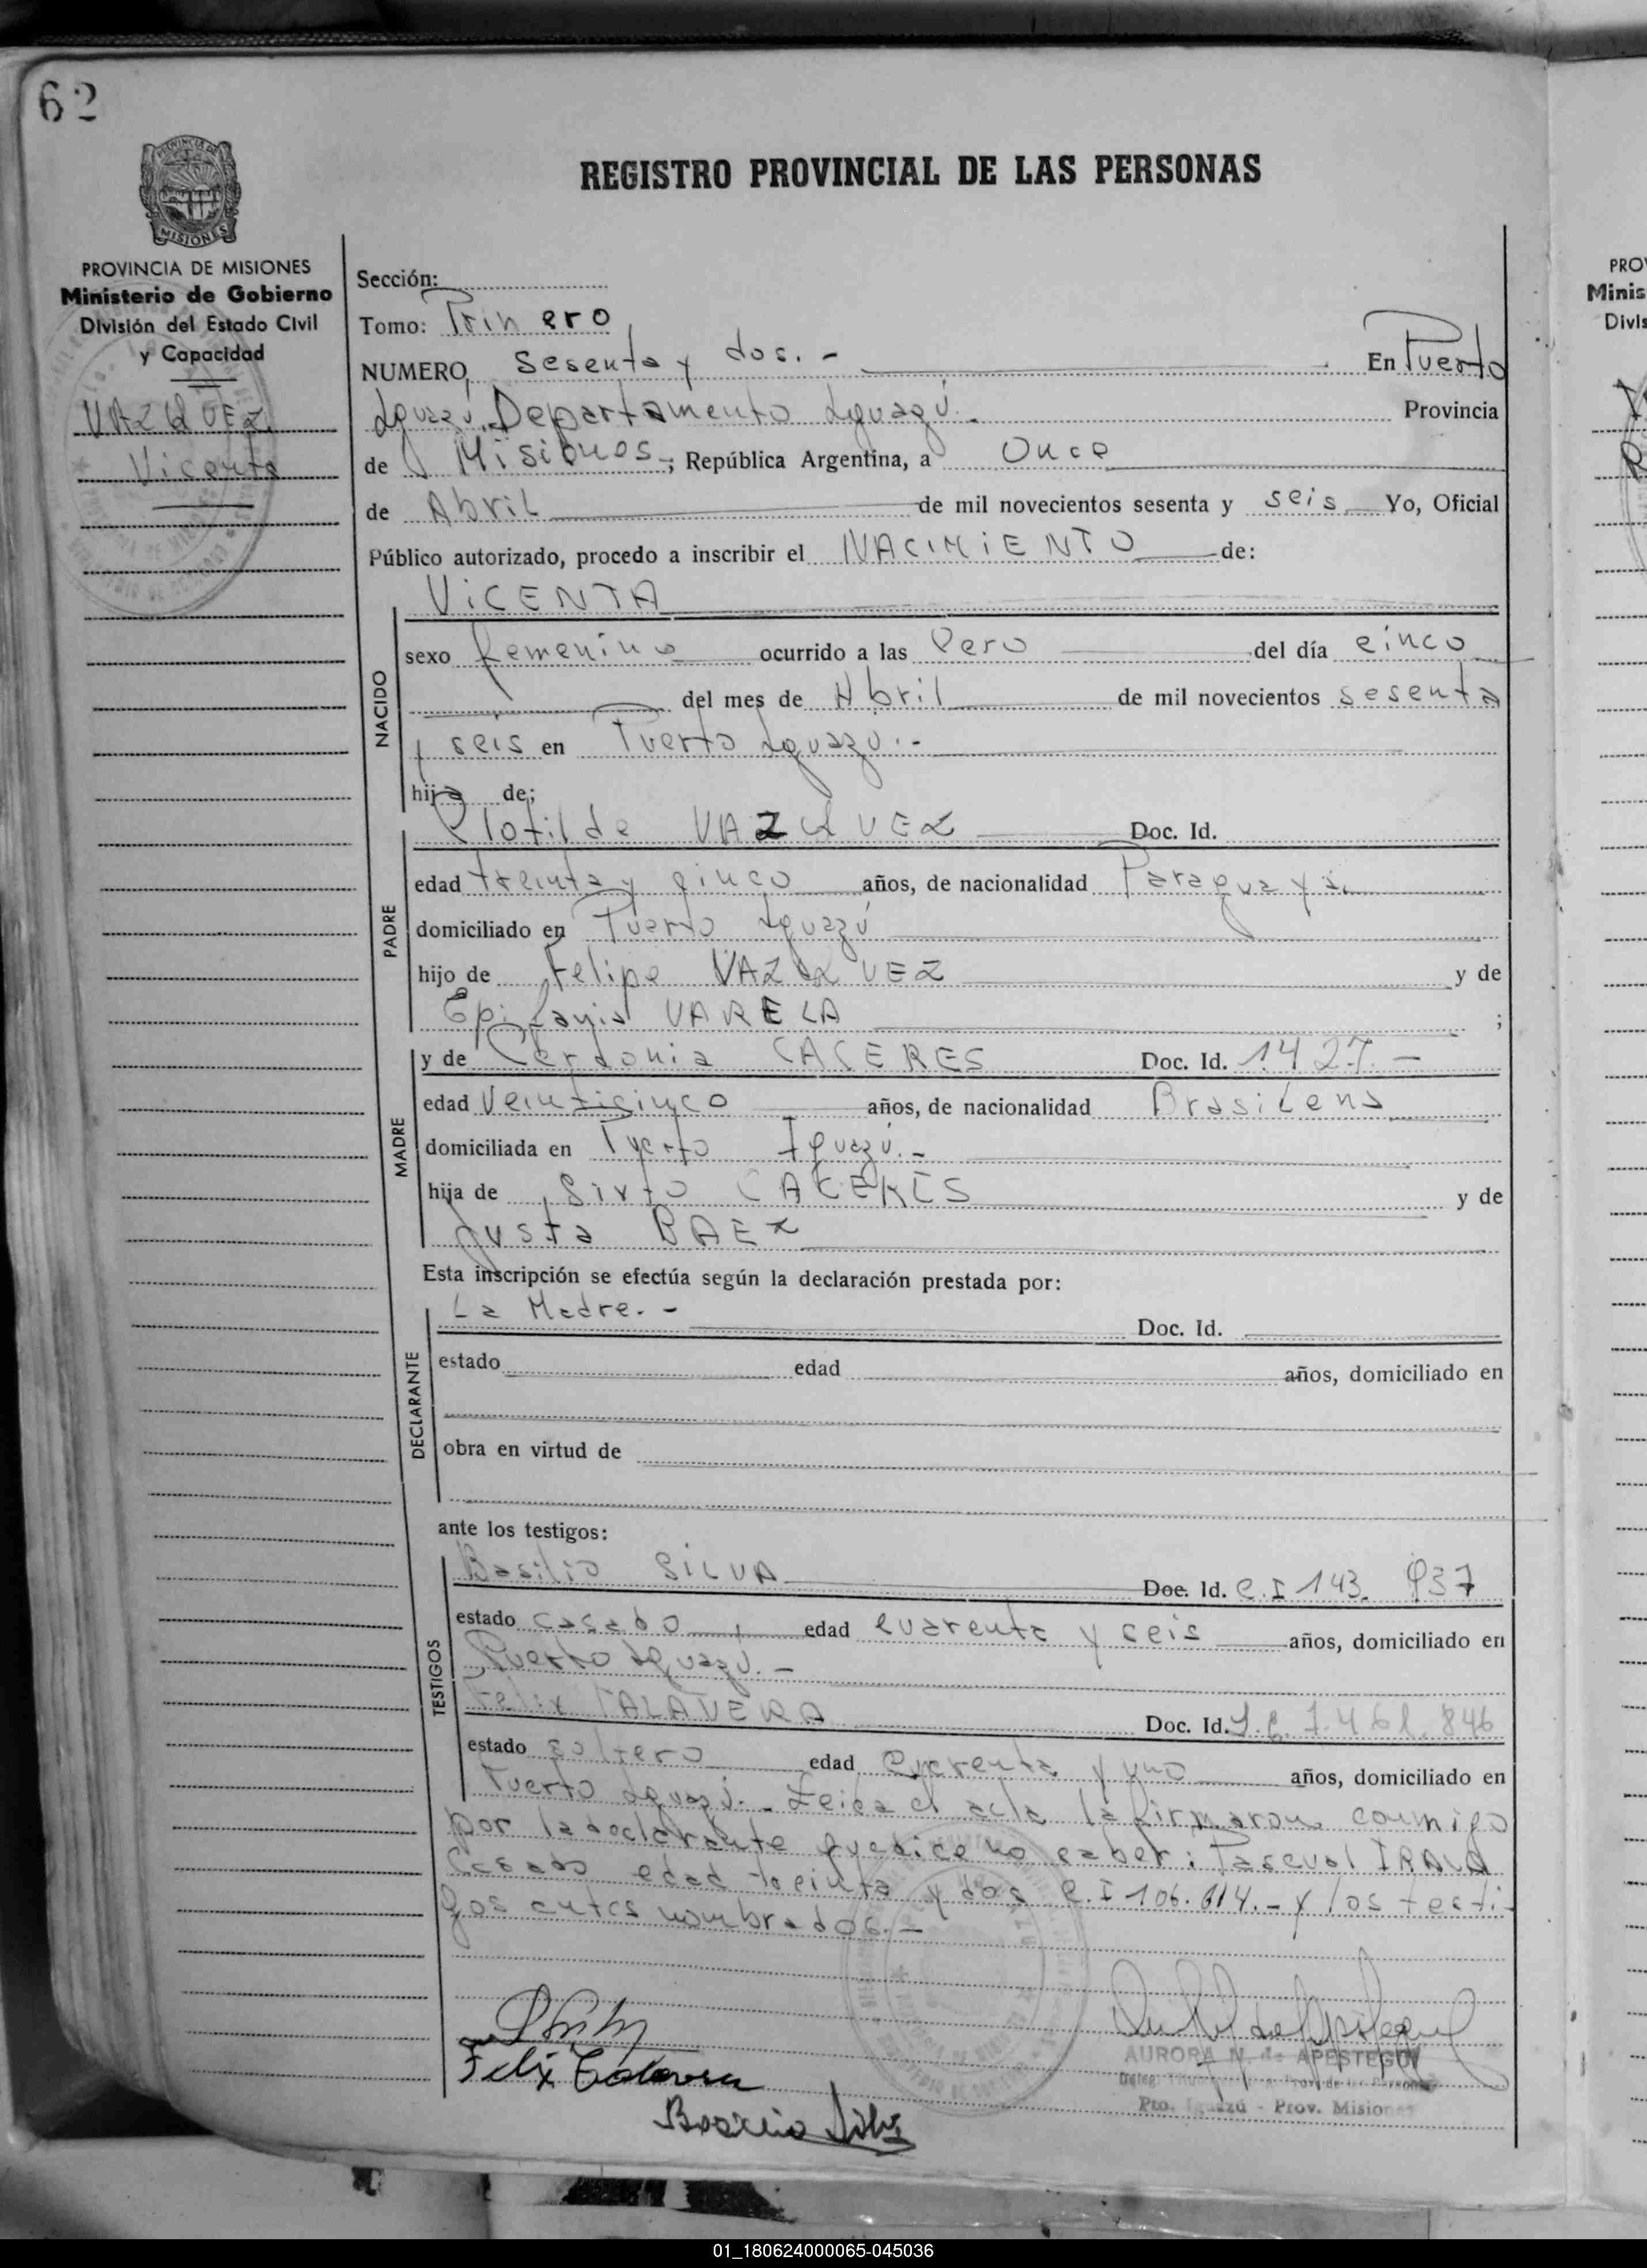 62
REGISTRO PROVINCIAL DE LAS PERSONAS
MISIONES
PROVINCIA DE MISIONES
Ministerio de Gobierno
División del Estado Civil
y Capacidad
VAZQUEZ
Vicenta
Sección:
Tomo: Primero
NUMERO, Sesenta y dos.- En Puerto
Iguazú, Departamento Iguazú.- Provincia
de Misiones.-; República Argentina, a Once
de Abril de mil novecientos sesenta y seis Yo, Oficial
Público autorizado, procedo a inscribir el NACIMIENTO de:
VICENTA
NACIDO
sexo femenino ocurrido a las Cero del día cinco
del mes de Abril de mil novecientos sesenta
y seis en Puerto Iguazú.-
hija de;
PADRE
Clotilde VAZQUEZ Doc. Id.
edad treinta y cinco años, de nacionalidad Paraguaya
domiciliado en Puerto Iguazú
hijo de Felipe VAZQUEZ y de
Epifania VARELA ;
MADRE
y de CACERES Doc. Id. 1427.-
edad Veinticinco años, de nacionalidad Brasilena
domiciliada en Puerto Iguazú.-
hija de Sixto CACERES y de
Justa BAEZ
Esta inscripción se efectúa según la declaración prestada por:
DECLARANTE
La Madre.- Doc. Id.
estado edad años, domiciliado en
obra en virtud de
ante los testigos:
TESTIGOS
Basilio SILVA Doc. Id. C.I 143. 937
estado casado edad cuarenta y seis años, domiciliado en
Puerto Iguazú.-
Felix TALAVERA Doc. Id. 846
estado soltero edad cuarenta y uno años, domiciliado en
Puerto Iguazú.- Leida el acta la firmaron conmigo
por la declarante que dice no saber: Pascual IRALA
Casado edad treinta y dos C.I 106.614.- y los testi-
gos antes nombrados.-
Felix Talavera
Basilio Silva
AURORA N. de APESTEGUI
Pto. Iguazú - Prov. Misiones
01_180624000065-045036